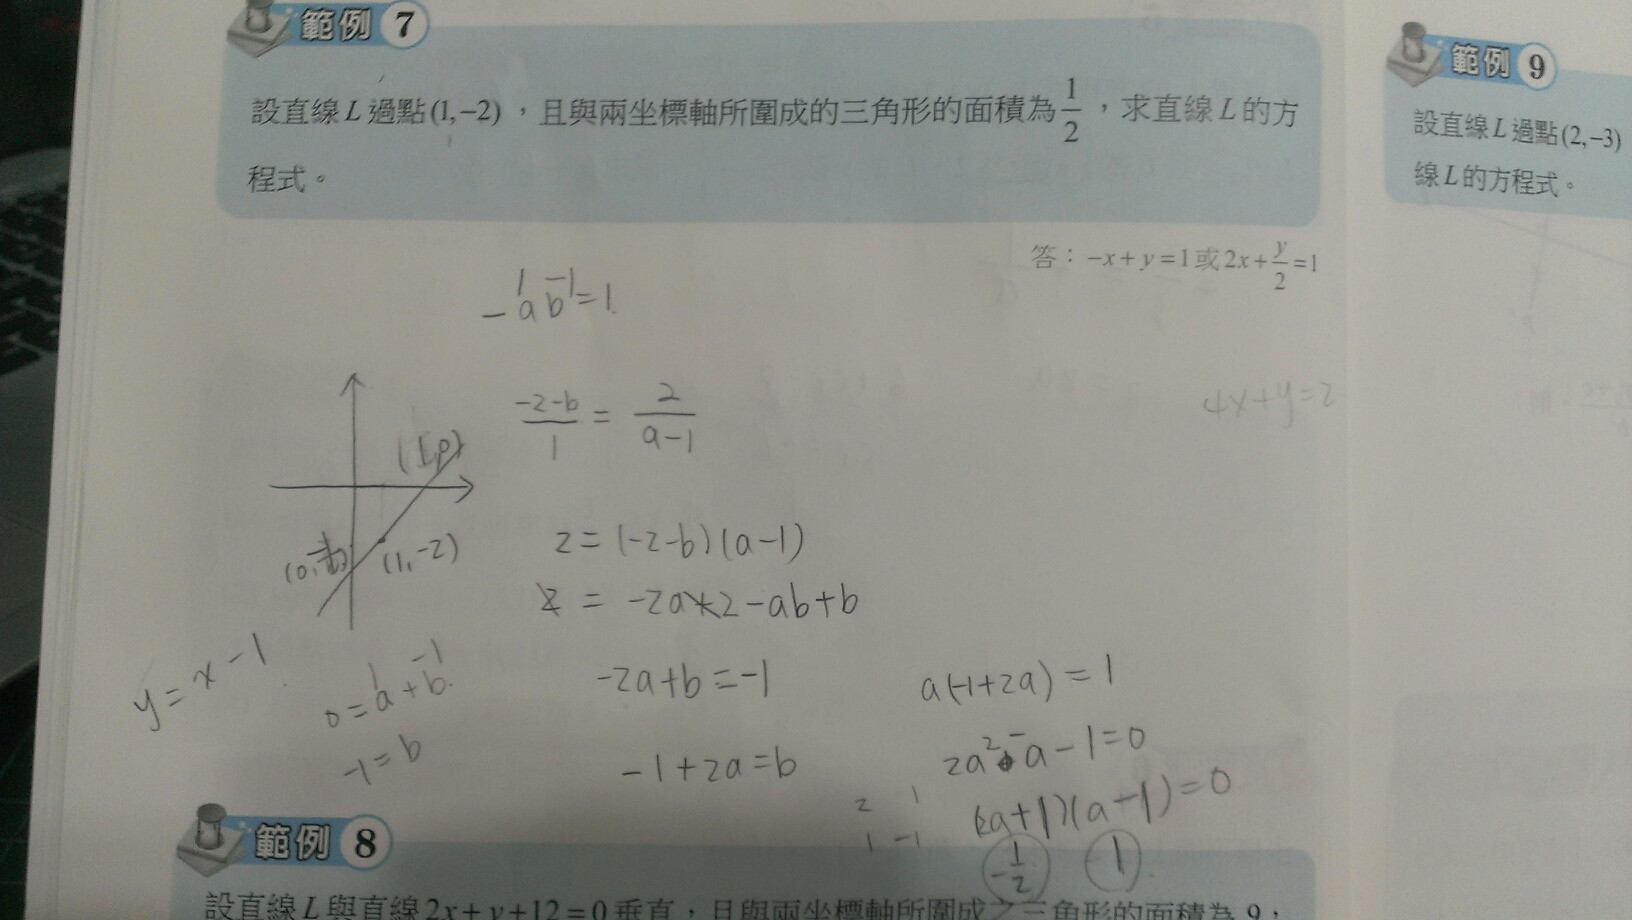 範例 7
設直線L過點(1,-2),且與兩坐標軸所圍成的三角形的面積為1/2,求直線L的方
程式。
答:-x+y=1或2x+y/2=1
-ab=1
1 -1
(-2-b)/1 = 2/(a-1)
4x+y=2
(1,-2)
2=(-2-b)(a-1)
2 = -2a+2-ab+b
y=x-1
1 -1
0=a+b
-1=b
-2a+b=-1
-1+2a=b
a(-1+2a)=1
2a²-a-1=0
2 1
1 -1
(2a+1)(a-1)=0
-1/2 1
範例 8
設直線L與直線2x+y+12=0垂直,且與兩坐標軸所圍成之三角形的面積為9,
範例 9
設直線L過點(2,-3)
線L的方程式。